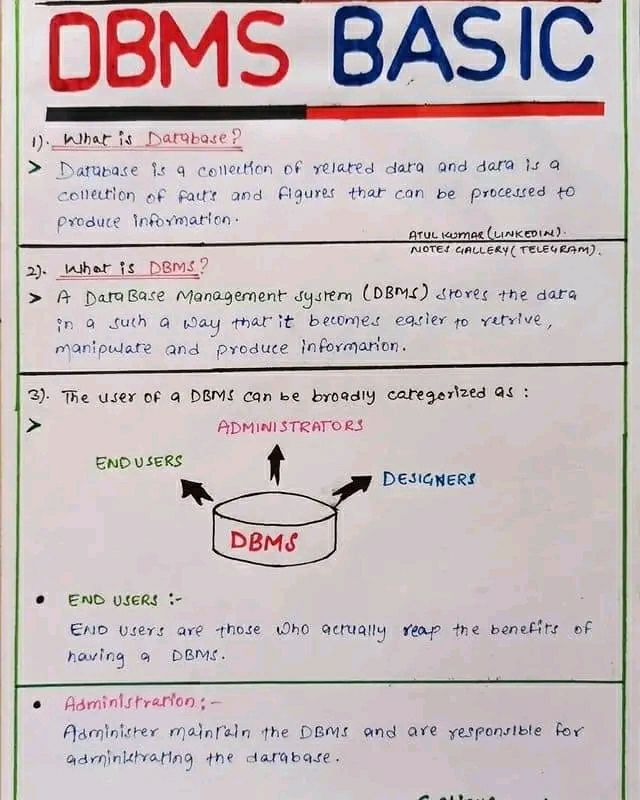 DBMS BASIC
1). What is Database?
> Database is a collection of related data and data is a
collection of facts and figures that can be processed to
produce information.
ATUL KUMAR (LINKEDIN).
NOTES GALLERY (TELEGRAM).
2). What is DBMS?
> A DataBase Management system (DBMS) stores the data
in a such a way that it becomes easier to retrive,
manipulate and produce information.
3). The user of a DBMS can be broadly categorized as :
>
ADMINISTRATORS
END USERS
DESIGNERS
DBMS
• END USERS :-
END Users are those who actually reap the benefits of
having a DBMS.
• Administration :-
Administer maintain the DBMS and are responsible for
administrating the database.